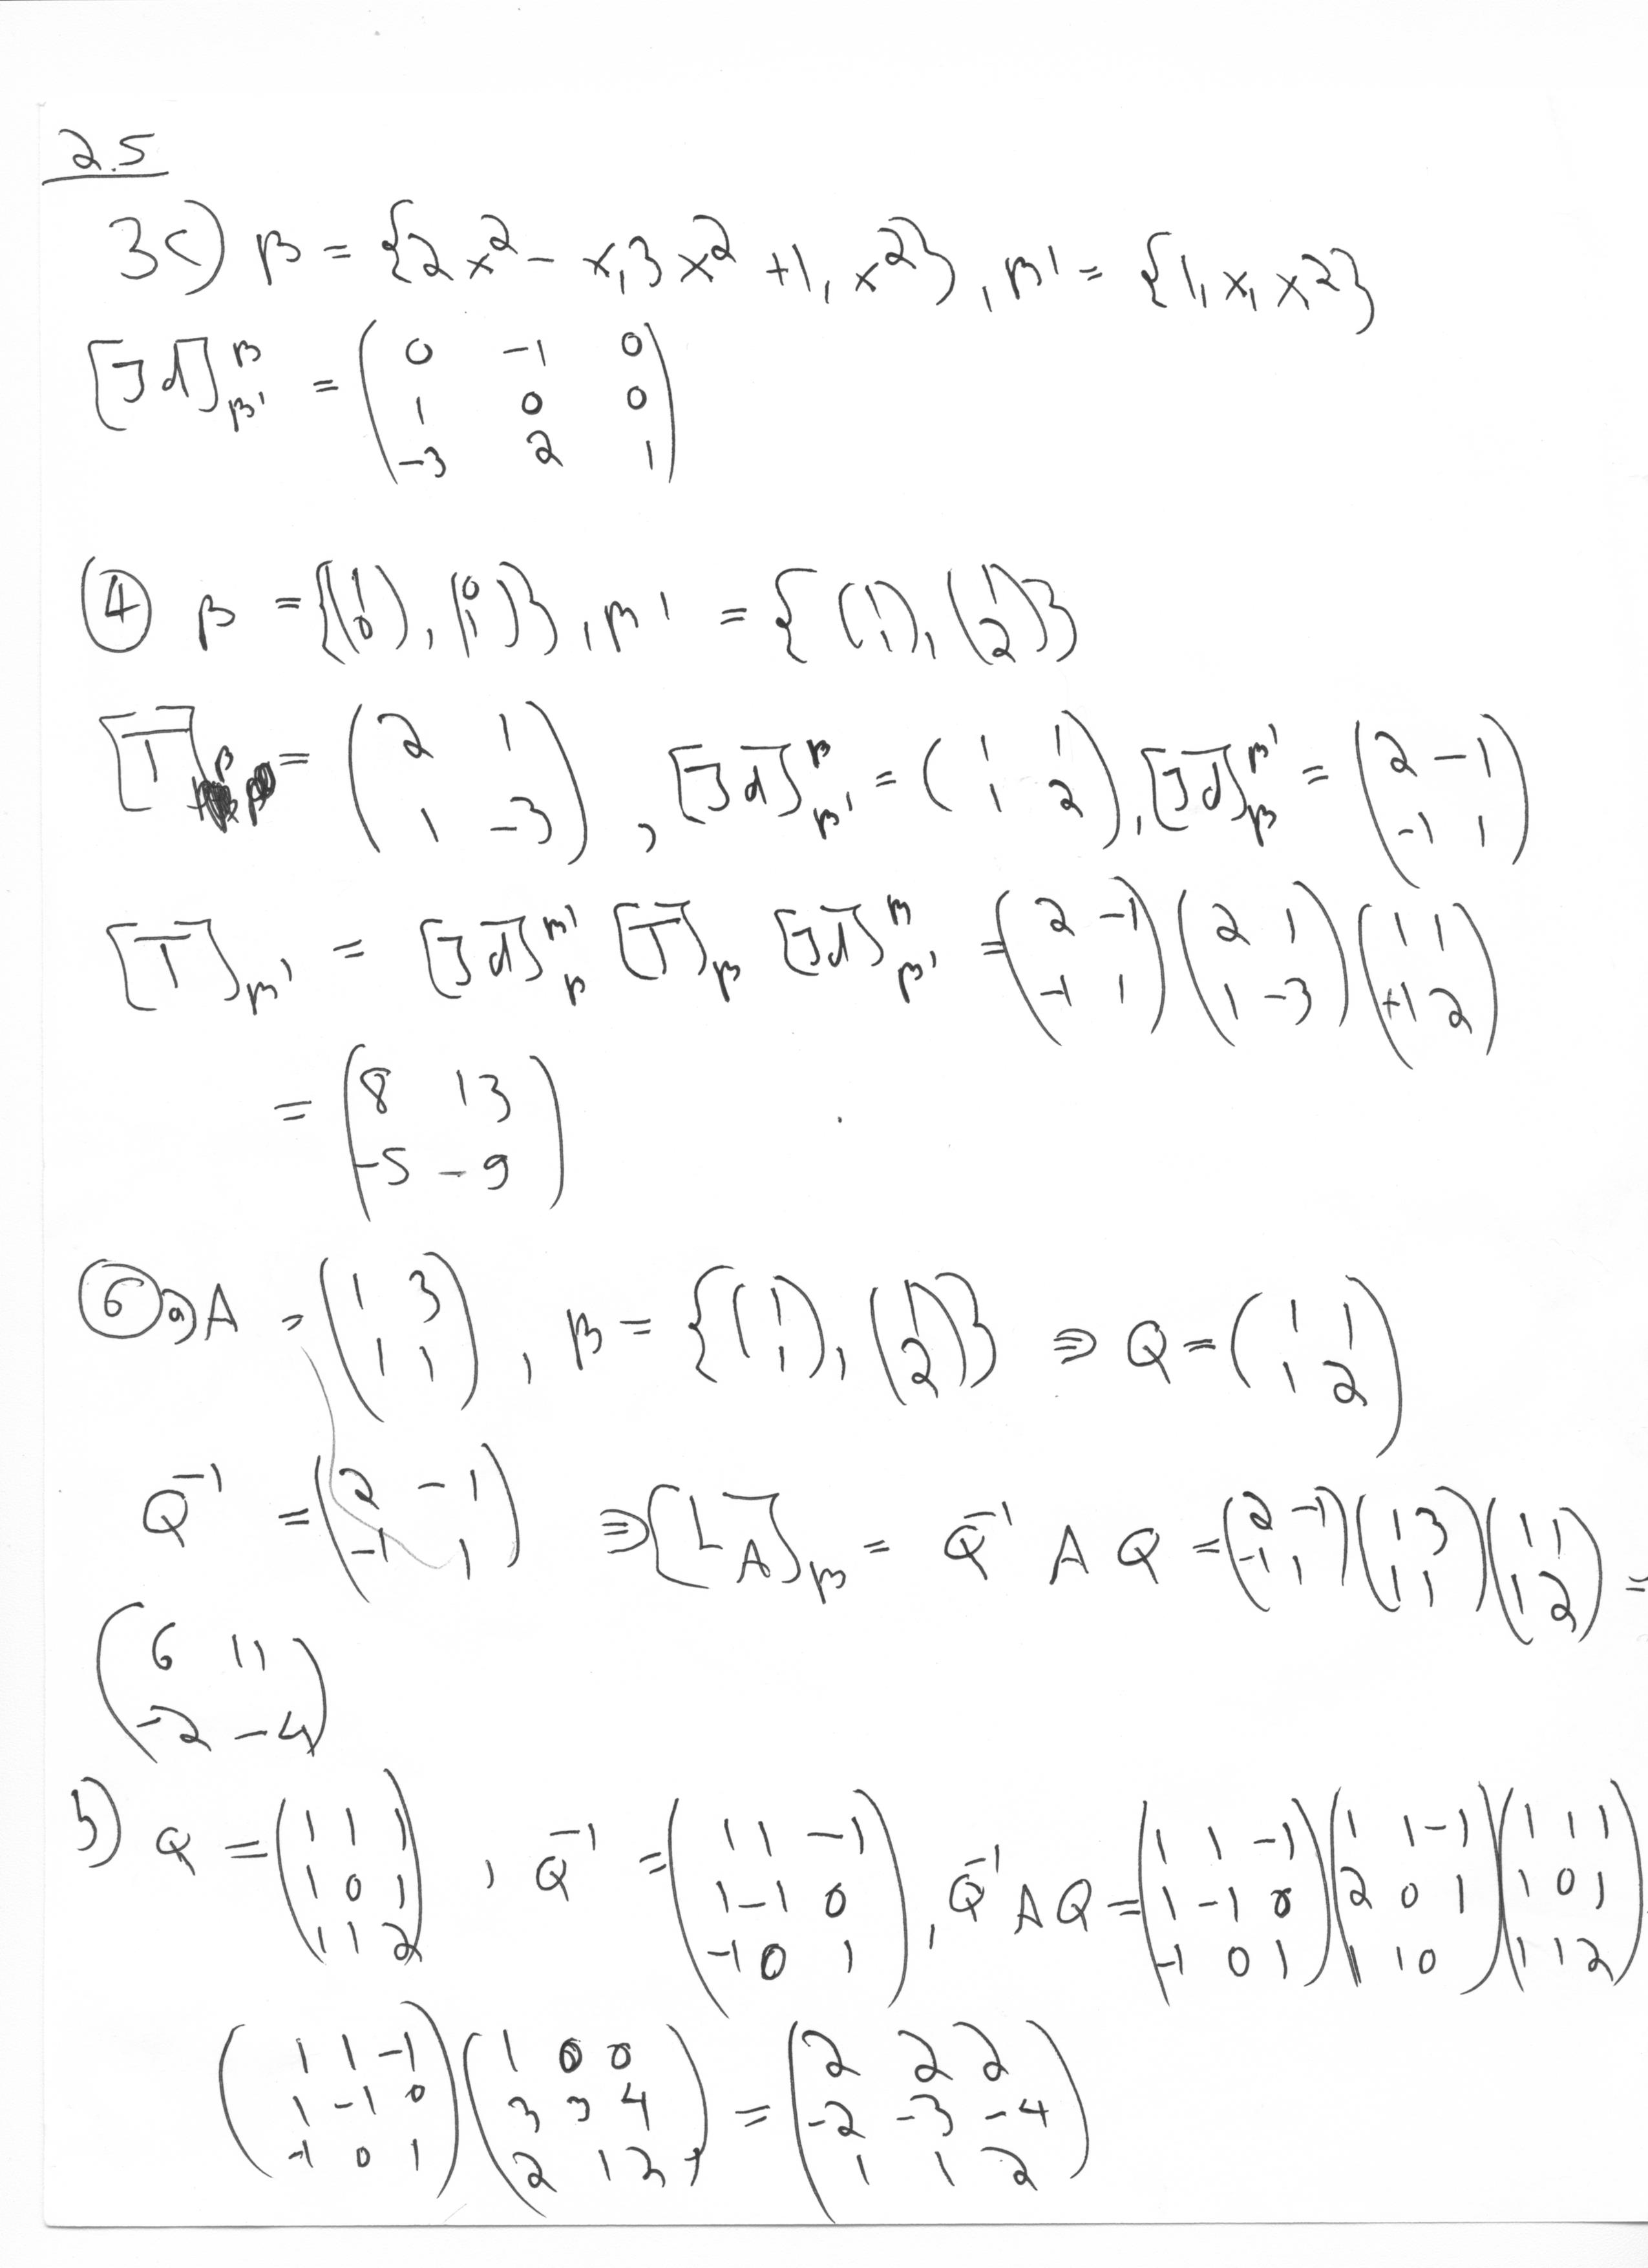 2.5
3c) β = {2x² - x, 3x² + 1, x²}, β' = {1, x, x²}
[Id]^β_β' = ( 0 -1 0
1 0 0
-3 2 1 )
④ β = {(1 0), (0 1)}, β' = {(1 1), (1 2)}
[T]_β = (2 1
1 -3), [Id]^β_β' = (1 1
1 2), [Id]^β'_β = (2 -1
-1 1)
[T]_β' = [Id]^β'_β [T]_β [Id]^β_β' = (2 -1
-1 1)(2 1
1 -3)(1 1
+1 2)
= (8 13
-5 -9)
⑥ a) A = (1 3
1 1), β = {(1 1), (1 2)} ⇒ Q = (1 1
1 2)
Q⁻¹ = (2 -1
-1 1) ⇒ [L_A]_β = Q⁻¹ A Q = (2 -1
-1 1)(1 3
1 1)(1 1
1 2) =
(6 11
-2 -4)
b) Q = (1 1 1
1 0 1
1 1 2), Q⁻¹ = (1 1 -1
1 -1 0
-1 0 1), Q⁻¹AQ = (1 1 -1
1 -1 0
-1 0 1)(1 1 -1
2 0 1
1 1 0)(1 1 1
1 0 1
1 1 2)
(1 1 -1
1 -1 0
-1 0 1)(1 0 0
3 3 4
2 1 2) = (2 2 2
-2 -3 -4
1 1 2)